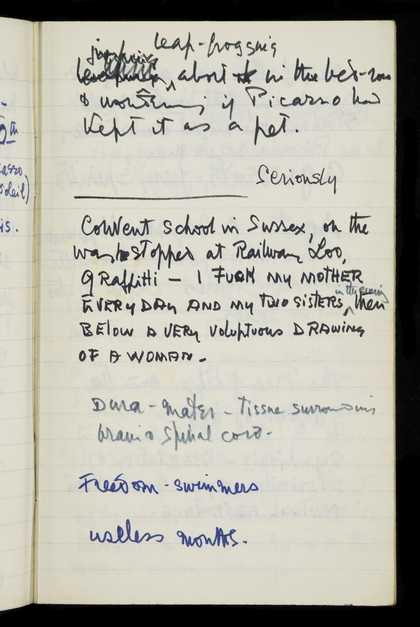 leap-frogging
jumping
about in the bed-room
& wondering if Picasso had
kept it as a pet.
Seriously
Convent School in Sussex, on the
way stopped at Railway Loo,
graffitti – I FUCK MY MOTHER
in the evening
EVERY DAY AND MY TWO SISTERS, then
BELOW A VERY VOLUPTUOUS DRAWING
OF A WOMAN –
Dura-mater – tissue surrounding
brain & spinal cord.
Freedom-swimmers
useless months.